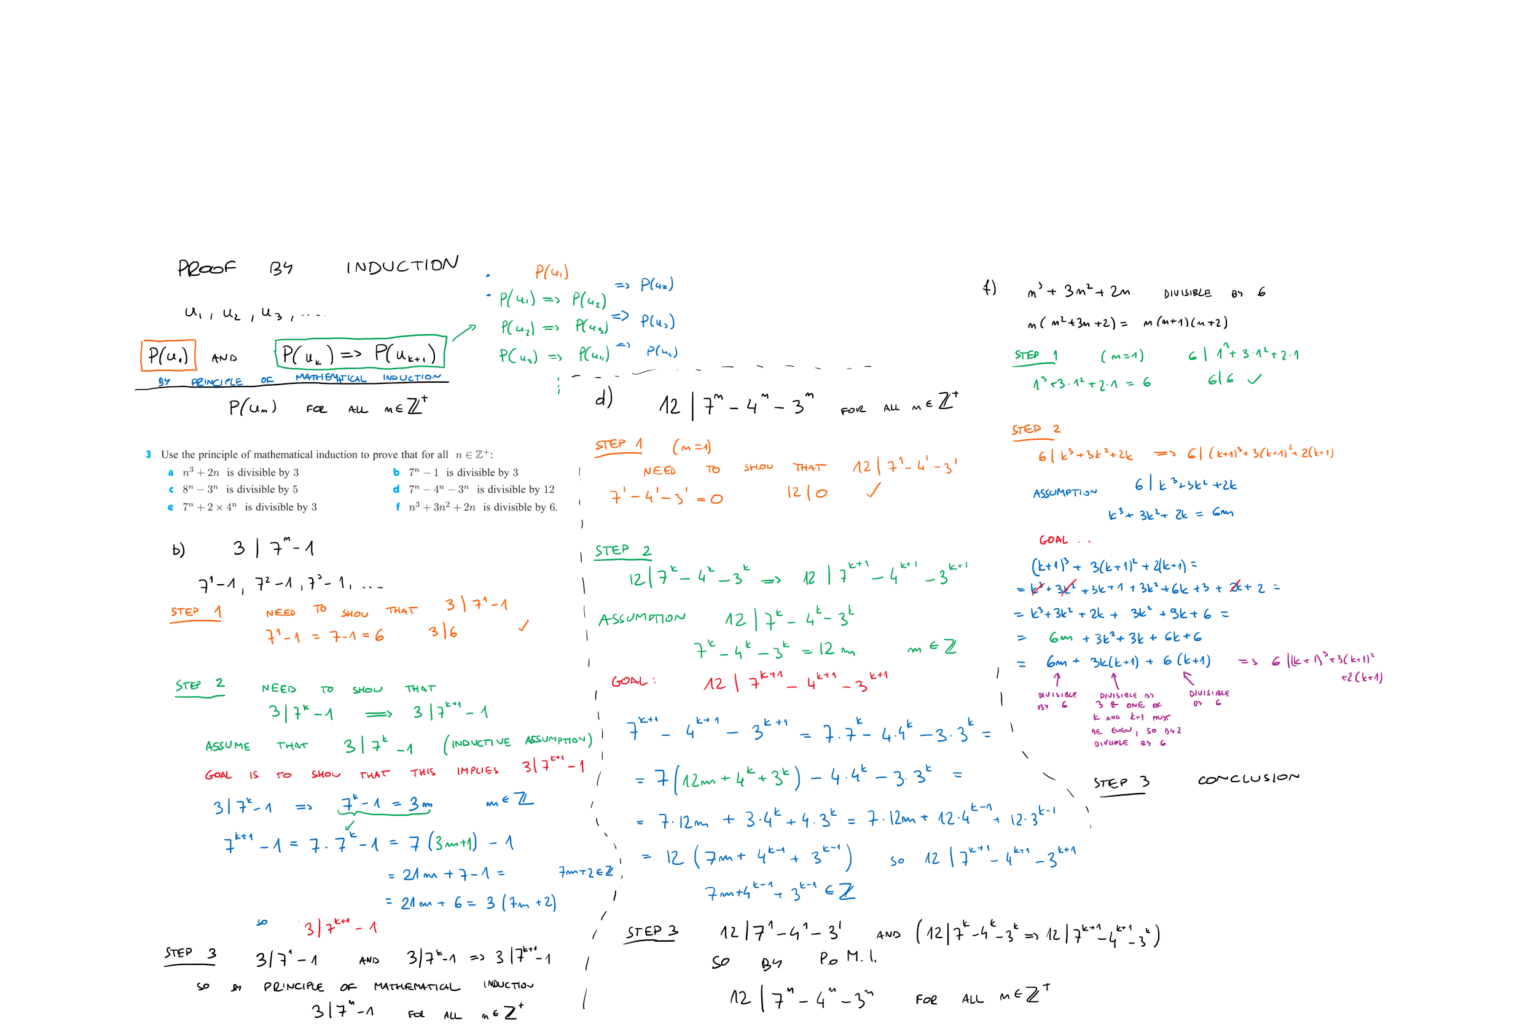 PROOF BY INDUCTION
u₁, u₂, u₃, ....
P(u₁) AND P(uₖ) => P(uₖ₊₁)
BY PRINCIPLE OF MATHEMATICAL INDUCTION
P(uₙ) FOR ALL n∈ℤ⁺
• P(u₁)
• P(u₁) => P(u₂) => P(u₂)
P(u₂) => P(u₃) => P(u₃)
P(u₃) => P(u₄) => P(u₄)
3 Use the principle of mathematical induction to prove that for all n ∈ ℤ⁺:
a n³ + 2n is divisible by 3 b 7ⁿ − 1 is divisible by 3
c 8ⁿ − 3ⁿ is divisible by 5 d 7ⁿ − 4ⁿ − 3ⁿ is divisible by 12
e 7ⁿ + 2 × 4ⁿ is divisible by 3 f n³ + 3n² + 2n is divisible by 6.
b) 3 | 7ⁿ-1
7¹-1, 7²-1, 7³-1, ...
STEP 1 NEED TO SHOW THAT 3 | 7¹-1
7¹-1 = 7-1 = 6 3|6 ✓
STEP 2 NEED TO SHOW THAT
3 | 7ᵏ-1 => 3 | 7ᵏ⁺¹-1
ASSUME THAT 3 | 7ᵏ-1 (INDUCTIVE ASSUMPTION)
GOAL IS TO SHOW THAT THIS IMPLIES 3 | 7ᵏ⁺¹-1
3 | 7ᵏ-1 => 7ᵏ-1 = 3m m∈ℤ
7ᵏ⁺¹-1 = 7·7ᵏ-1 = 7(3m+1) - 1
= 21m + 7-1 = 7m+2∈ℤ
= 21m + 6 = 3(7m+2)
so 3 | 7ᵏ⁺¹-1
STEP 3 3 | 7¹-1 AND 3 | 7ᵏ-1 => 3 | 7ᵏ⁺¹-1
SO BY PRINCIPLE OF MATHEMATICAL INDUCTION
3 | 7ⁿ-1 FOR ALL n∈ℤ⁺
d) 12 | 7ⁿ - 4ⁿ - 3ⁿ FOR ALL n∈ℤ⁺
STEP 1 (n=1)
NEED TO SHOW THAT 12 | 7¹-4¹-3¹
7¹-4¹-3¹ = 0 12 | 0 ✓
STEP 2
12 | 7ᵏ-4ᵏ-3ᵏ => 12 | 7ᵏ⁺¹-4ᵏ⁺¹-3ᵏ⁺¹
ASSUMPTION 12 | 7ᵏ-4ᵏ-3ᵏ
7ᵏ-4ᵏ-3ᵏ = 12m m∈ℤ
GOAL: 12 | 7ᵏ⁺¹-4ᵏ⁺¹-3ᵏ⁺¹
7ᵏ⁺¹ - 4ᵏ⁺¹ - 3ᵏ⁺¹ = 7·7ᵏ - 4·4ᵏ - 3·3ᵏ =
= 7(12m + 4ᵏ + 3ᵏ) - 4·4ᵏ - 3·3ᵏ =
= 7·12m + 3·4ᵏ + 4·3ᵏ = 7·12m + 12·4ᵏ⁻¹ + 12·3ᵏ⁻¹
= 12(7m + 4ᵏ⁻¹ + 3ᵏ⁻¹) so 12 | 7ᵏ⁺¹-4ᵏ⁺¹-3ᵏ⁺¹
7m+4ᵏ⁻¹+3ᵏ⁻¹ ∈ℤ
STEP 3 12 | 7¹-4¹-3¹ AND (12 | 7ᵏ-4ᵏ-3ᵏ => 12 | 7ᵏ⁺¹-4ᵏ⁺¹-3ᵏ)
SO BY P.o M.I.
12 | 7ⁿ-4ⁿ-3ⁿ FOR ALL n∈ℤ⁺
f) n³ + 3n² + 2n DIVISIBLE BY 6
n(n²+3n+2) = n(n+1)(n+2)
STEP 1 (n=1) 6 | 1³+3·1²+2·1
1³+3·1²+2·1 = 6 6|6 ✓
STEP 2
6 | k³+3k²+2k => 6 | (k+1)³+3(k+1)²+2(k+1)
ASSUMPTION 6 | k³+3k²+2k
k³+3k²+2k = 6m
GOAL ...
(k+1)³ + 3(k+1)² + 2(k+1) =
= k³+3k²+3k+1+3k²+6k+3+2k+2 =
= k³+3k²+2k + 3k²+9k+6 =
= 6m + 3k²+3k + 6k+6
= 6m + 3k(k+1) + 6(k+1) => 6 | (k+1)³+3(k+1)²
+2(k+1)
DIVISIBLE BY 6
DIVISIBLE BY 3 & ONE OF k AND k+1 MUST BE EVEN, SO BY 2 DIVISIBLE BY 6
DIVISIBLE BY 6
STEP 3 CONCLUSION